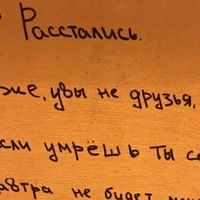 Расстались.
же, увы не друзья,
сли умрёшь ты се
автра не будет мен